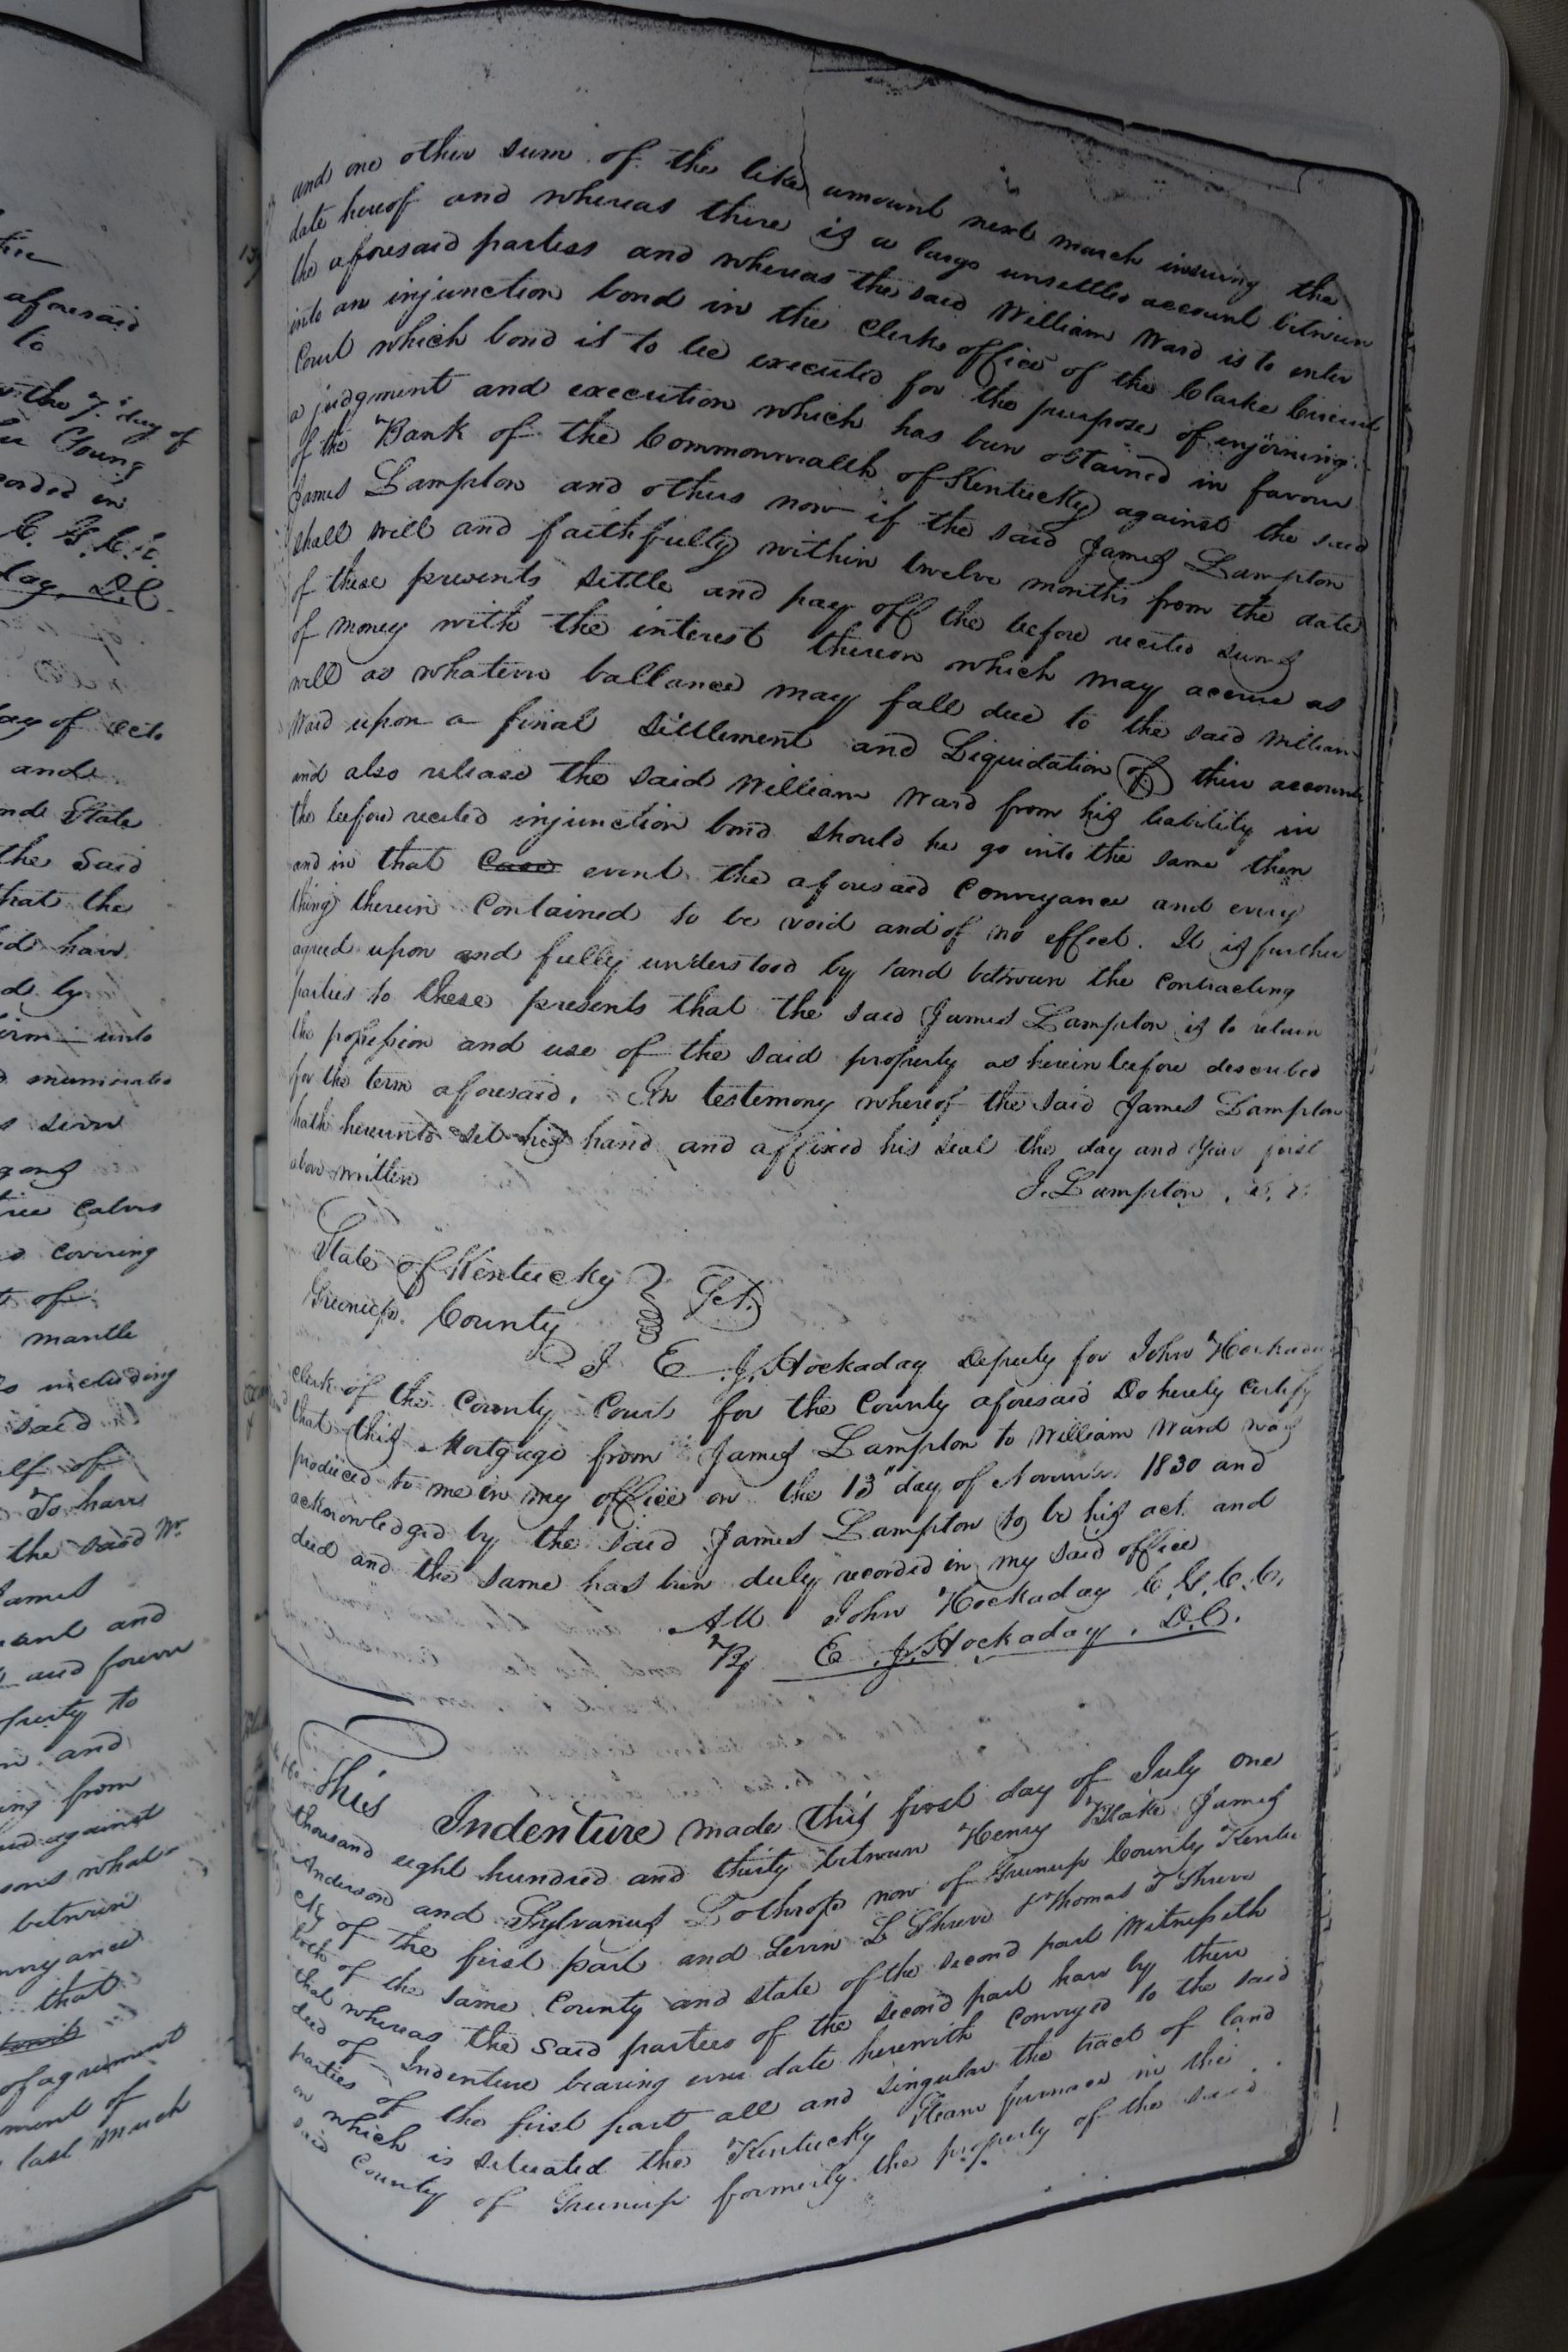 tion
aforesaid
to
with the 7th day of
Young
corded in
C. G. C. C.
day, D.C.
day of Octo
and
and State
the Said
that the
have
d by
unto
enumerated
gang
calves
covering
of
mantle
including
said
half of
To have
the said Wm
James
and
and forever
to
and
from
against
what
between
that
of agreement
ment of
last March
and one other sum of the like amount next march insuing the
date hereof and whereas there is a large unsettled account between
the aforesaid parties and whereas the said William Ward is to enter
into an injunction bond in the clerks office of the Clarke Circuit
Court which bond is to be executed for the purpose of enjoining
a judgment and execution which has been obtained in favour
of the Bank of the Commonwealth of Kentucky against the said
James Lampton and others now if the said James Lampton
shall will and faithfully within twelve months from the date
of these presents settle and pay off the before recited sums
of money with the interest thereon which may accrue as
well as whatever ballance may fall due to the said William
Ward upon a final settlement and Liquidation of their accounts
and also release the said William Ward from his liability in
the before recited injunction bond should he go into the same then
and in that Case event the aforesaid conveyance and every
thing therein contained to be void and of no effect. It is further
agreed upon and fully understood by and between the contracting
parties to these presents that the said James Lampton is to retain
the possession and use of the said property as herein before described
for the term aforesaid. In testimony whereof the said James Lampton
hath hereunto set his hand and affixed his seal the day and Year first
above written
J. Lampton
State of Kentucky
Greenup County Sct.
I E. J. Hockaday Deputy for John Hockaday
clerk of the County Court for the County aforesaid Do hereby certify
that this Mortgage from James Lampton to William Ward was
produced to me in my office on the 13" day of November 1830 and
acknowledged by the said James Lampton to be his act and
deed and the same has been duly recorded in my said office
Att John Hockaday C. G. C. C.
By E. J. Hockaday, D.C.
This Indenture made this first day of July one
thousand eight hundred and thirty between Henry Blake James
Anderson and Sylvanus Lothrop now of Greenup County Kentu
cky of the first part and Levin L Shreve & Thomas T Shreve
both of the same County and state of the second part Witnesseth
that whereas the said parties of the second part have by their
deed of Indenture bearing even date herewith conveyed to the said
parties of the first part all and singular the tract of land
on which is situated the Kentucky Steam furnace in the
said County of Greenup formerly the property of the said